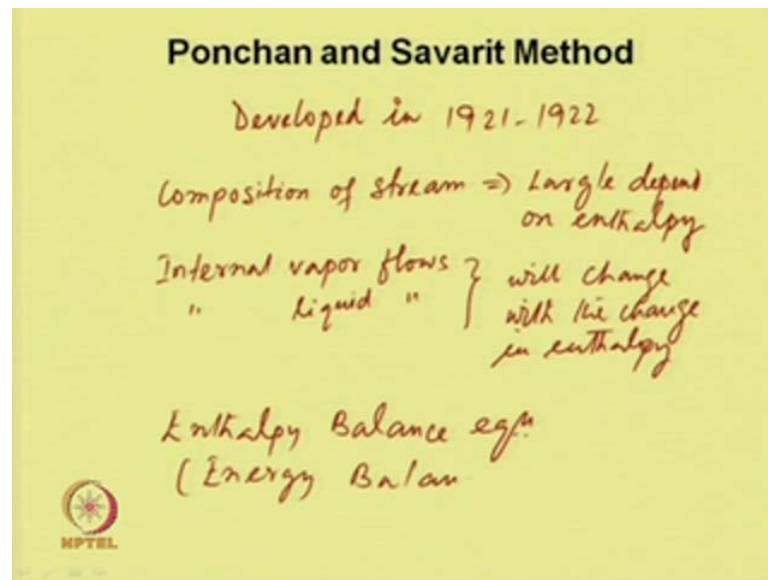 Ponchan and Savarit Method
Developed in 1921-1922
Composition of stream => Largle depend
on enthalpy
Internal vapor flows } will change
" liquid " with the change
in enthalpy
Enthalpy Balance eqn.
(Energy Balan
NPTEL